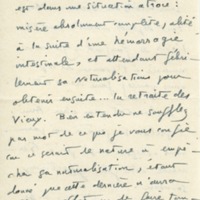 est dans une situation atroce :
misère absolument complète, alité
à la suite d'une hémorragie
intestinale, et attendant fébri-
lement sa naturalisation pour
obtenir ensuite... la retraite des
Vieux. Bien entendu ne soufflez
pas mot de ce que je vous confie
car ce serait de nature à empê-
cher sa naturalisation, étant
donné que cette dernière n'aurait